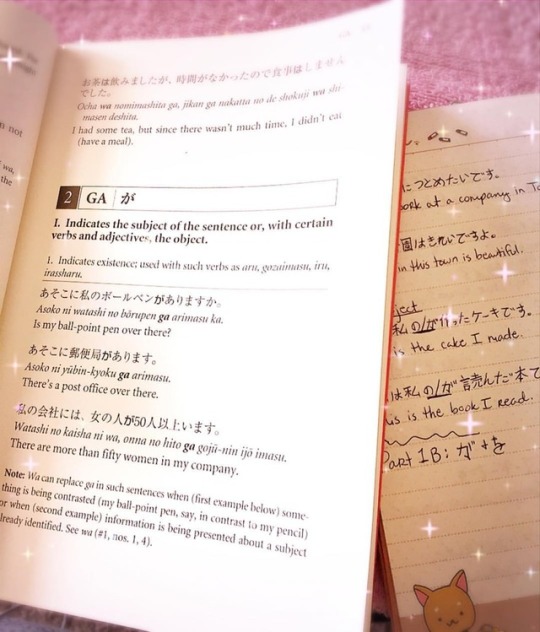 お茶は飲みましたが、時間がなかったので食事はしません
でした。
Ocha wa nomimashita ga, jikan ga nakatta no de shokuji wa shi-
masen deshita.
I had some tea, but since there wasn't much time, I didn't eat
(have a meal).
2 GA が
I. Indicates the subject of the sentence or, with certain
verbs and adjectives, the object.
1. Indicates existence; used with such verbs as aru, gozaimasu, iru,
irassharu.
あそこに私のボールペンがありますか。
Asoko ni watashi no bōrupen ga arimasu ka.
Is my ball-point pen over there?
あそこに郵便局があります。
Asoko ni yūbin-kyoku ga arimasu.
There's a post office over there.
私の会社には、女の人が50人以上います。
Watashi no kaisha ni wa, onna no hito ga gojū-nin ijō imasu.
There are more than fifty women in my company.
Note: Wa can replace ga in such sentences when (first example below) some-
thing is being contrasted (my ball-point pen, say, in contrast to my pencil)
or when (second example) information is being presented about a subject
already identified. See wa (#1, nos. 1, 4).
not
wa,
the
につとめたいです。
work at a company in To
園はきれいですよ。
in this town is beautiful.
ject
私の/が作ったケーキです。
is the cake I made.
は私の/が読んだ本で
us is the book I read.
Part 1B: が+を